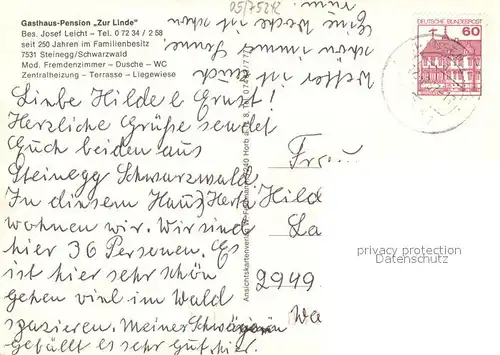 Gasthaus-Pension „Zur Linde"
Bes. Josef Leicht – Tel. 0 72 34 / 2 58
seit 250 Jahren im Familienbesitz
7531 Steinegg/Schwarzwald
Mod. Fremdenzimmer – Dusche – WC
Zentralheizung – Terrasse – Liegewiese
Liebe Hilde & Ernst!
Herzliche Grüße sendet
Euch beiden aus
Steinegg Schwarzwald
In diesem Haus) Herta
wohnen wir. Wir sind
hier 36 Personen. Es
ist hier sehr schön
gehen viel im Wald
spazieren. Meiner Schwägerin
gefällt es sehr gut hier.
Wetter ist auch
schön. Sonne.
Eine Woche ist
05/75212
DEUTSCHE BUNDESPOST
60
Frau
Hild
La
2949
Wa
Ansichtskartenverlag W.
privacy protection
Datenschutz